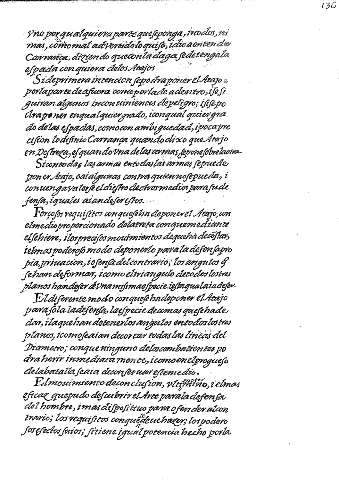 136
Uno por qualquiera parte que se ponga, inodos, ni
mas, como mal advertido lo quiso, i dio a entender
Carrança, diziendo que con la daga se detenga la
espada con quiera de los Atajos
Si de primera intencion se podra poner el Atajo,
por la parte de afuera como por la de adentro, i se si
guiran algunos inconvinientes de peligro; i si se po
dra poner en qual quier grado, i con qual quier gra
do de las espadas, como con ambiguedad, i poca pre
cision lo difinio Carrança quando dixo que Atajo
en Destreza, es quando una de las armas, se pone sobre la otra
Si con todas las armas en todas las armas se puede
poner Atajo, i ai algunas contra quien no se pueda, i
con venga valerse el diestro de otro medio para su de
fensa, i quales ayan de ser estos.
Forçosos requisitos con que se ha de poner el Atajo, con
el medio proporcionado de la treta con que mediante
el se hiere, i los precisos movimientos de que ha de constar,
i el mas poderoso modo de ponerlo para la defensa pro
pia, privacion, i ofensa del contrario; los angulos que
se han de formar, i como el triangulo de todos los tres
planos han de ser de una misma especie, i esta qual aia de ser
El diferente modo con que se ha de poner el Atajo
para sola la defensa, las especies de armas que se ha de
dar, i la que han de tener los angulos en todos los tres
planos, i como se aian de cortar todas las lineas del
Diametro; con que ninguno de los combatientes po
dra herir inmediatamente, i como en el progreso
de la batalla se aia de conservar este medio.
El movimiento de conclusion, ultimo, i el mas
eficaz que pudo descubrir el Arte para la defensa
del hombre, i mas dispositivo para ofender al con
trario; los requisitos con que se deve hazer; los podero
sos efectos suios; si tiene igual potencia hecho por la